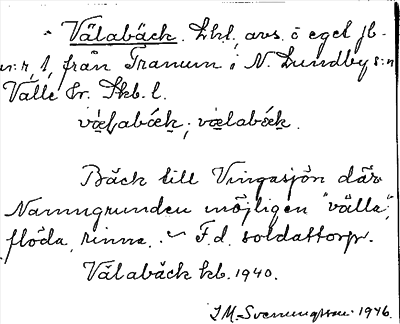 Välabäck. Lht, avs. å eget jb-
n:r, 1, från Tranum i N. Lundby s:n
Valle hr. Skb. l.
væḷabæ̀k; vælabæ̀k.
Bäck till Vingasjön där
Namngrunden möjligen "välla",
flöda, rinna. – F.d. soldattorp.
Välabäck kb. 1940.
J M. Svenungsson. 1946.